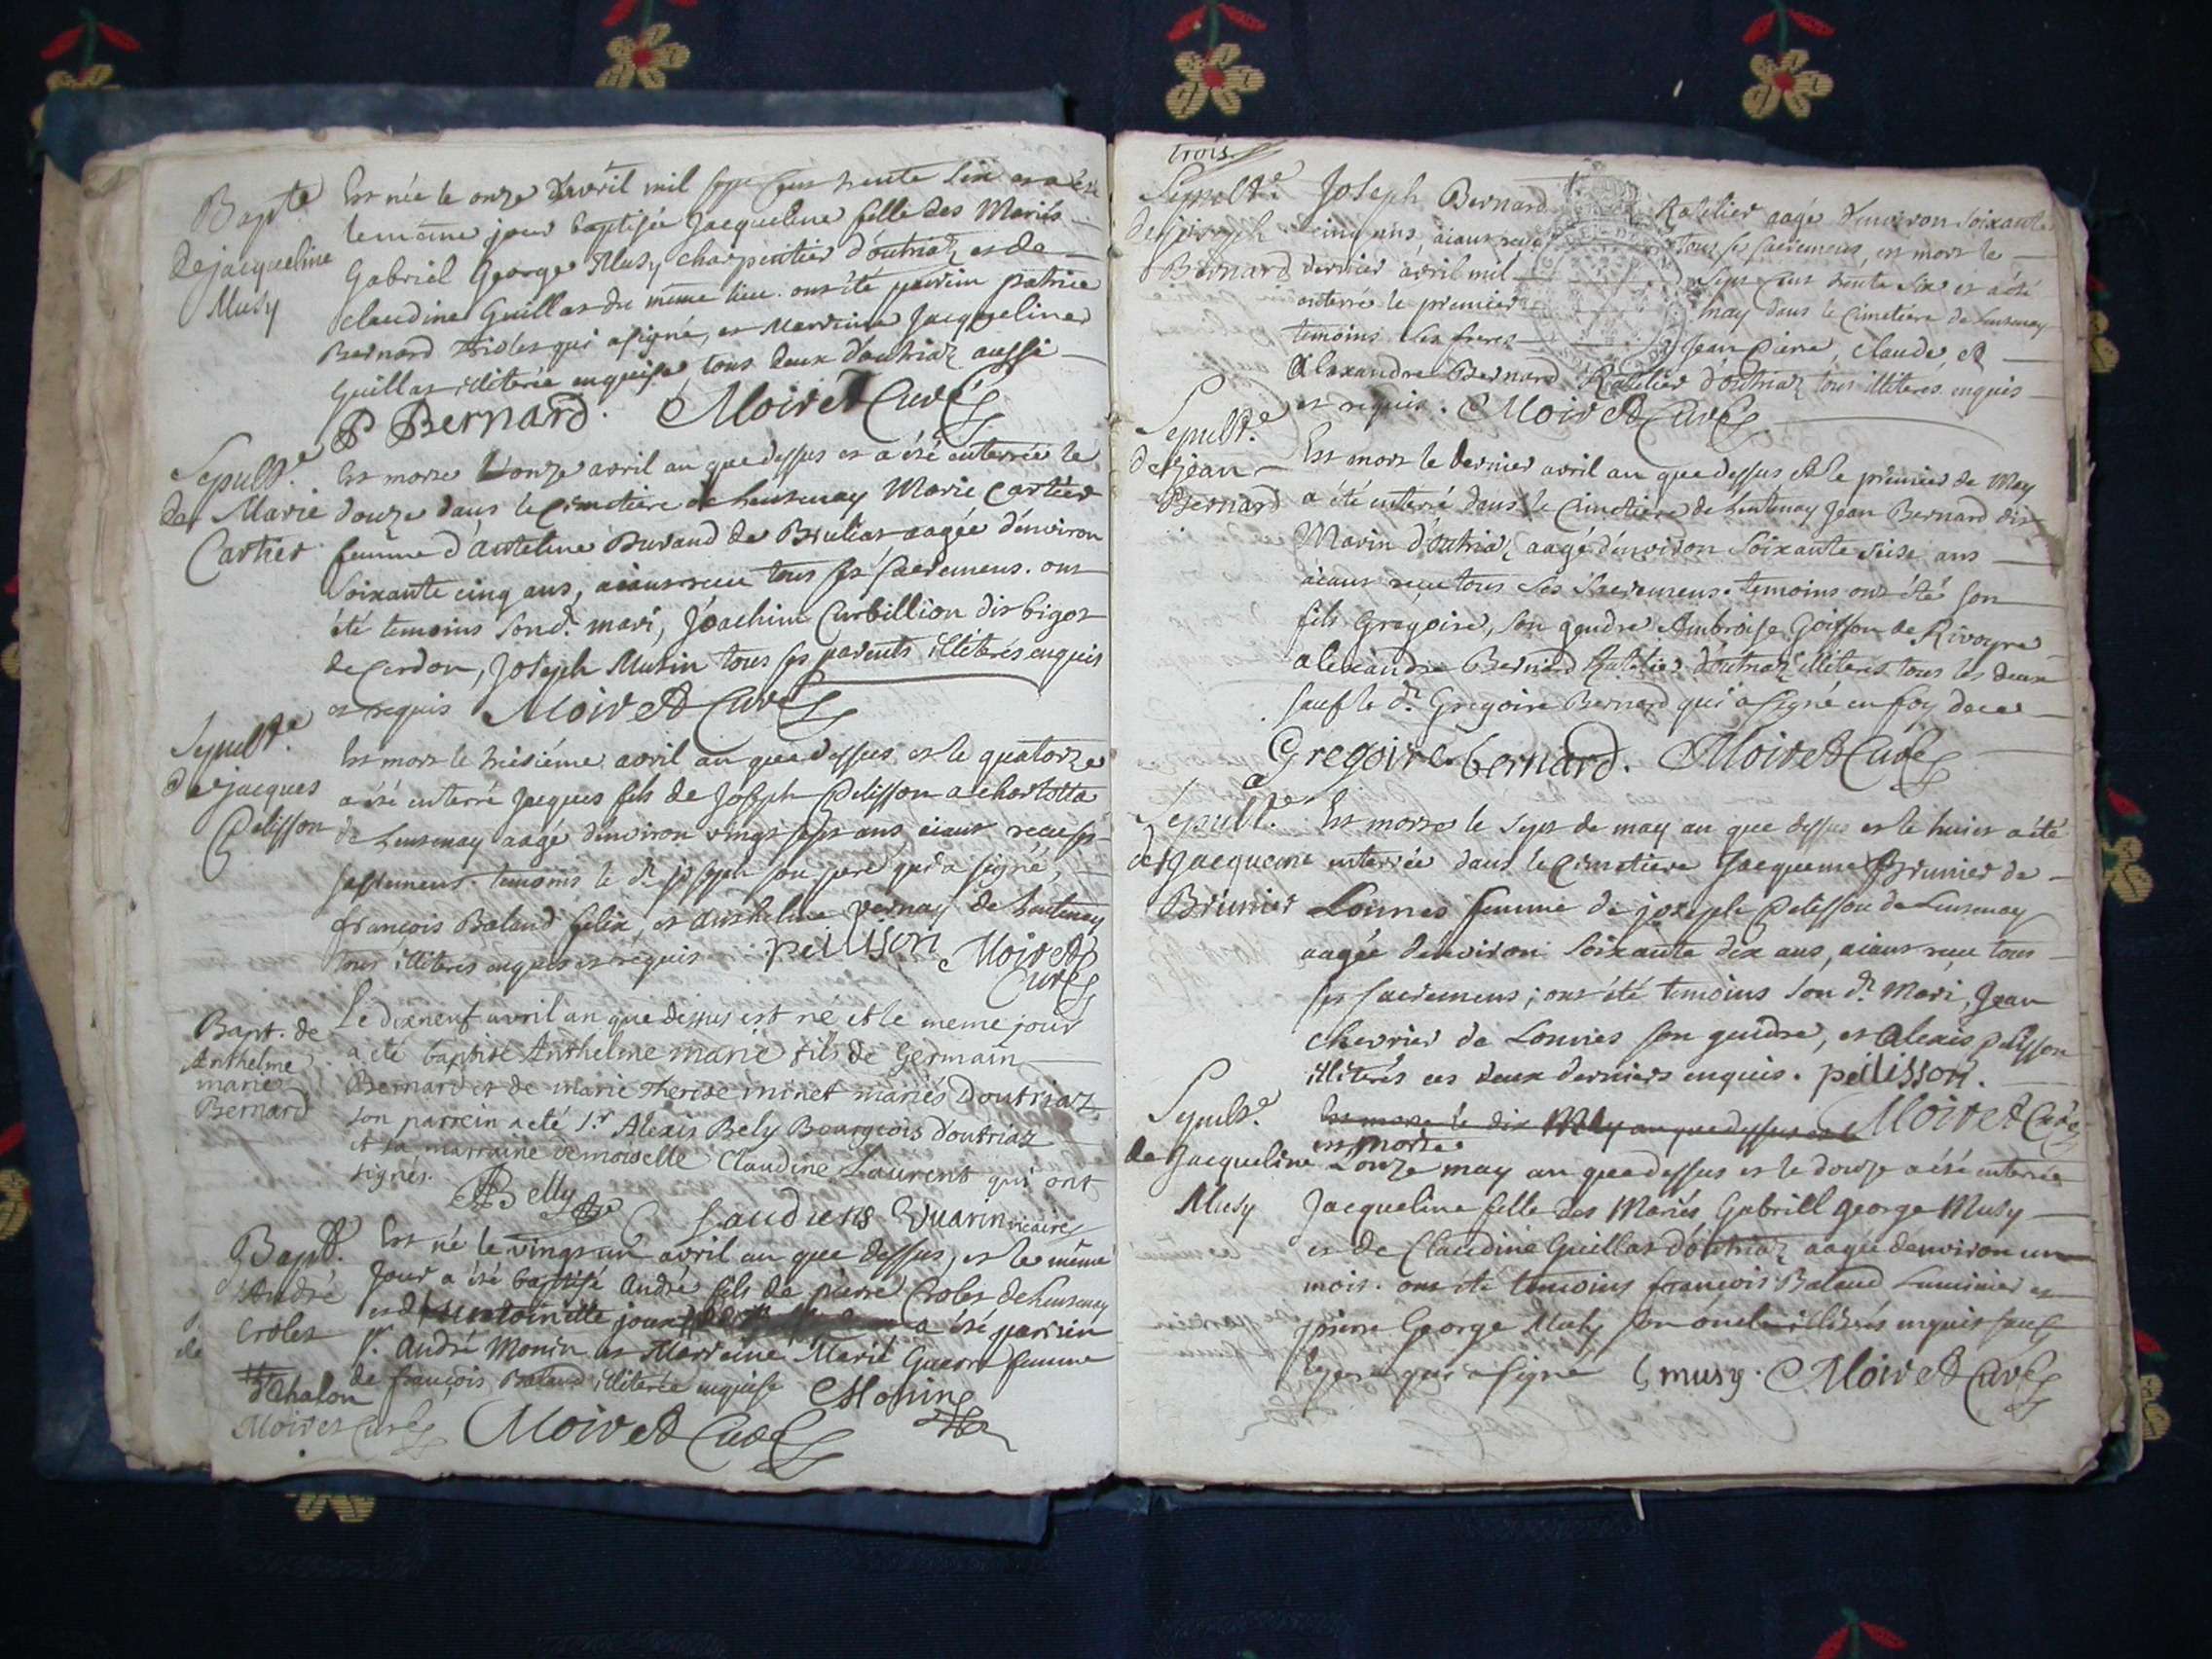 Bapte
de jacqueline
Musy
Est née le onze d'avril mil sept cens trente six et a été
le même jour baptisée Jacqueline fille des Mariés
Gabriel George Musy charpentier d'outriaz et de
claudine Guillat du même lieu. ont été parrin patrice
Bernard qui a signé, et Marreine Jacqueline
Guillat illiterée enquise tous deux d'outriaz aussi
P Bernard. Moiret Curé
Sepult.e
de Marie
Cartier
Est morte L'onze avril an que dessus et a été enterrée le
douze dans le Cimetiere de Lentenay Marie Cartier
femme d'Anteline Buvand de Bruliat aagée d'environ
soixante cinq ans, aiant receu tous ses sacremens. ont
été temoins son d. mari, Joachim Curbillion dit bigot
de Cerdon, Joseph Mutin tous ses parents illiterés enquis
et requis Moiret Curé
Sepult.e
de jacques
Pelisson
Est mort le treisiéme avril an que dessus et le quatorze
a été enterré Jacques fils de Joseph Pelisson a charlotta
de Lentenay aagé d'environ vingt sept ans aiant receu ses
sacremens. temoins le d. joseph son pere qui a signé,
françois Baland felix, et Anthelme Vernay de Lentenay
tous illiterés enquis et requis pellison Moiret
Curé
Bapt. de
Anthelme
marie
Bernard
Le dixneuf avril an que dessus est né et le meme jour
a eté baptisé Anthelme marie fils de Germain
Bernard et de marie Therese minet mariés D'outriaz
son parrein a eté s.r Alexis Bely Bourgeois d'outriaz
et sa marraine demoiselle Claudine Laurent qui ont
signés.
Belly Laudrens Vuarin vicaire
Bapt.
d'André
Crolet
Est né le vingt un avril an que dessus, et le même
jour a été baptisé André fils de pierre Crolet de Lentenay
et d'Antoinette joux a été parrein
s.r André Monin et Marreine Marie Guerre femme
de françois Baland illiterée enquise Monin
d'Chalon
Moiret Curé Moiret Curé
trois
Sepult.e
de joseph
Bernard
Joseph Bernard Ratelier aagé d'environ soixante
cinq ans, aiant receu tous ses sacremens, est mort le
dernier avril mil sept cens trente six et a été
enterré le premier may dans le Cimetiére de Lentenay
temoins ses freres Jean Pierre, Claude et
Alexandre Bernard Ratelier d'outriaz tous illiterés enquis
et requis. Moiret Curé
Sepult.e
de jean
Bernard
Est mort le dernier avril an que dessus, et le premier de May
a été enterré dans le Cimetiere de Lentenay Jean Bernard dit
Marin d'outriaz aagé d'environ soixante seise ans
aiant receu tous ses sacremens. temoins ont été son
fils Grégoire, son gendre Ambroise Goiffon de Rivoyre
alexandre Bernard Ratelier d'outriaz illiterés tous les deux
sauf le d. Gregoire Bernard qui a signé en foy de ce
Gregoire bernard. Moiret Curé
Sepult.e
de Jacqueme
Brunier
Est morte le sept de may an que dessus et le huict a été
enterrée dans le Cimetiere Jacqueme Brunier de
Lonnes femme de joseph Pelisson de Lentenay
aagée d'environ soixante dix ans, aiant receu tous
ses sacremens; ont été temoins son d. Mari, Jean
chevrier de Lonnes son gendre, et alexis pelisson
illiterés ces deux derniers enquis. pellisson.
Moiret Curé
Sepult.e
de Jacqueline
Musy
Est morte le dix May an que dessus et le
est morte
L'onze may an que dessus et le douze a été enterrée
Jacqueline fille des Mariés Gabriell George Musy
et de Claudine Guillat d'outriaz aagée d'environ un
mois. ont été temoins françois Baland Luminier et
pierre George Musy son oncle illiterés enquis sauf
le pere qui a signé G musy. Moiret Curé